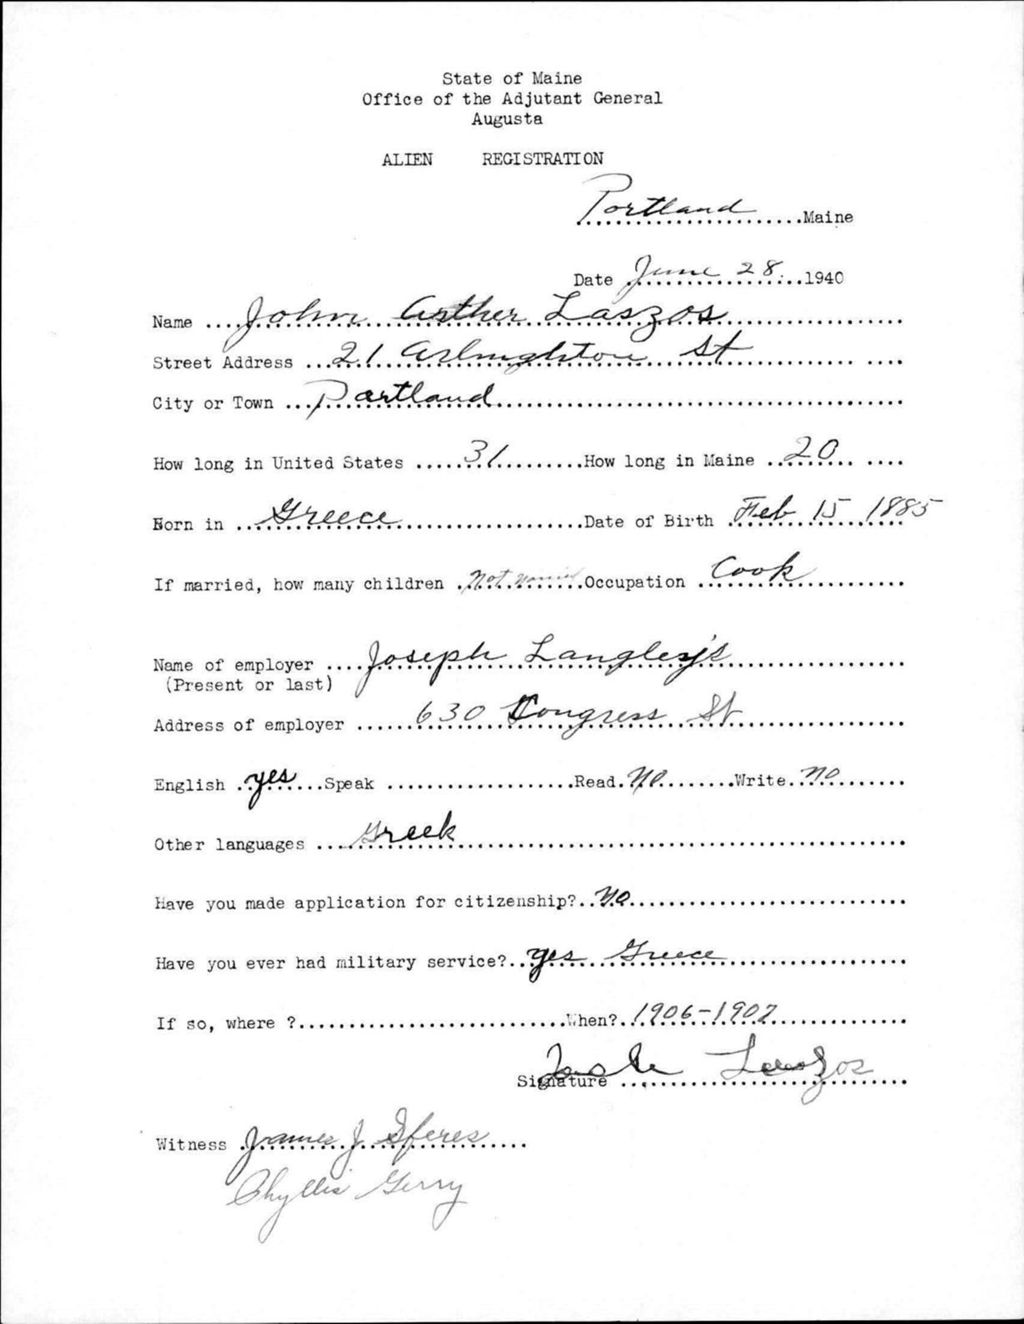 State of Maine
Office of the Adjutant General
Augusta
ALIEN REGISTRATION
Portland Maine
Date June 28 1940
Name John Arther Laszos
Street Address 21 Arlinghton St
City or Town Portland
How long in United States 31 How long in Maine 20
Born in Greece Date of Birth Feb 15 1885
If married, how many children Not Occupation Cook
Name of employer Joseph Langley's
(Present or last)
Address of employer 630 Congress St
English yes Speak Read No Write no
Other languages Greek
Have you made application for citizenship? No
Have you ever had military service? yes Greece
If so, where ? When? 1906-1907
Signature Laszos
Witness James J. Sferes
Phyllis Gerry